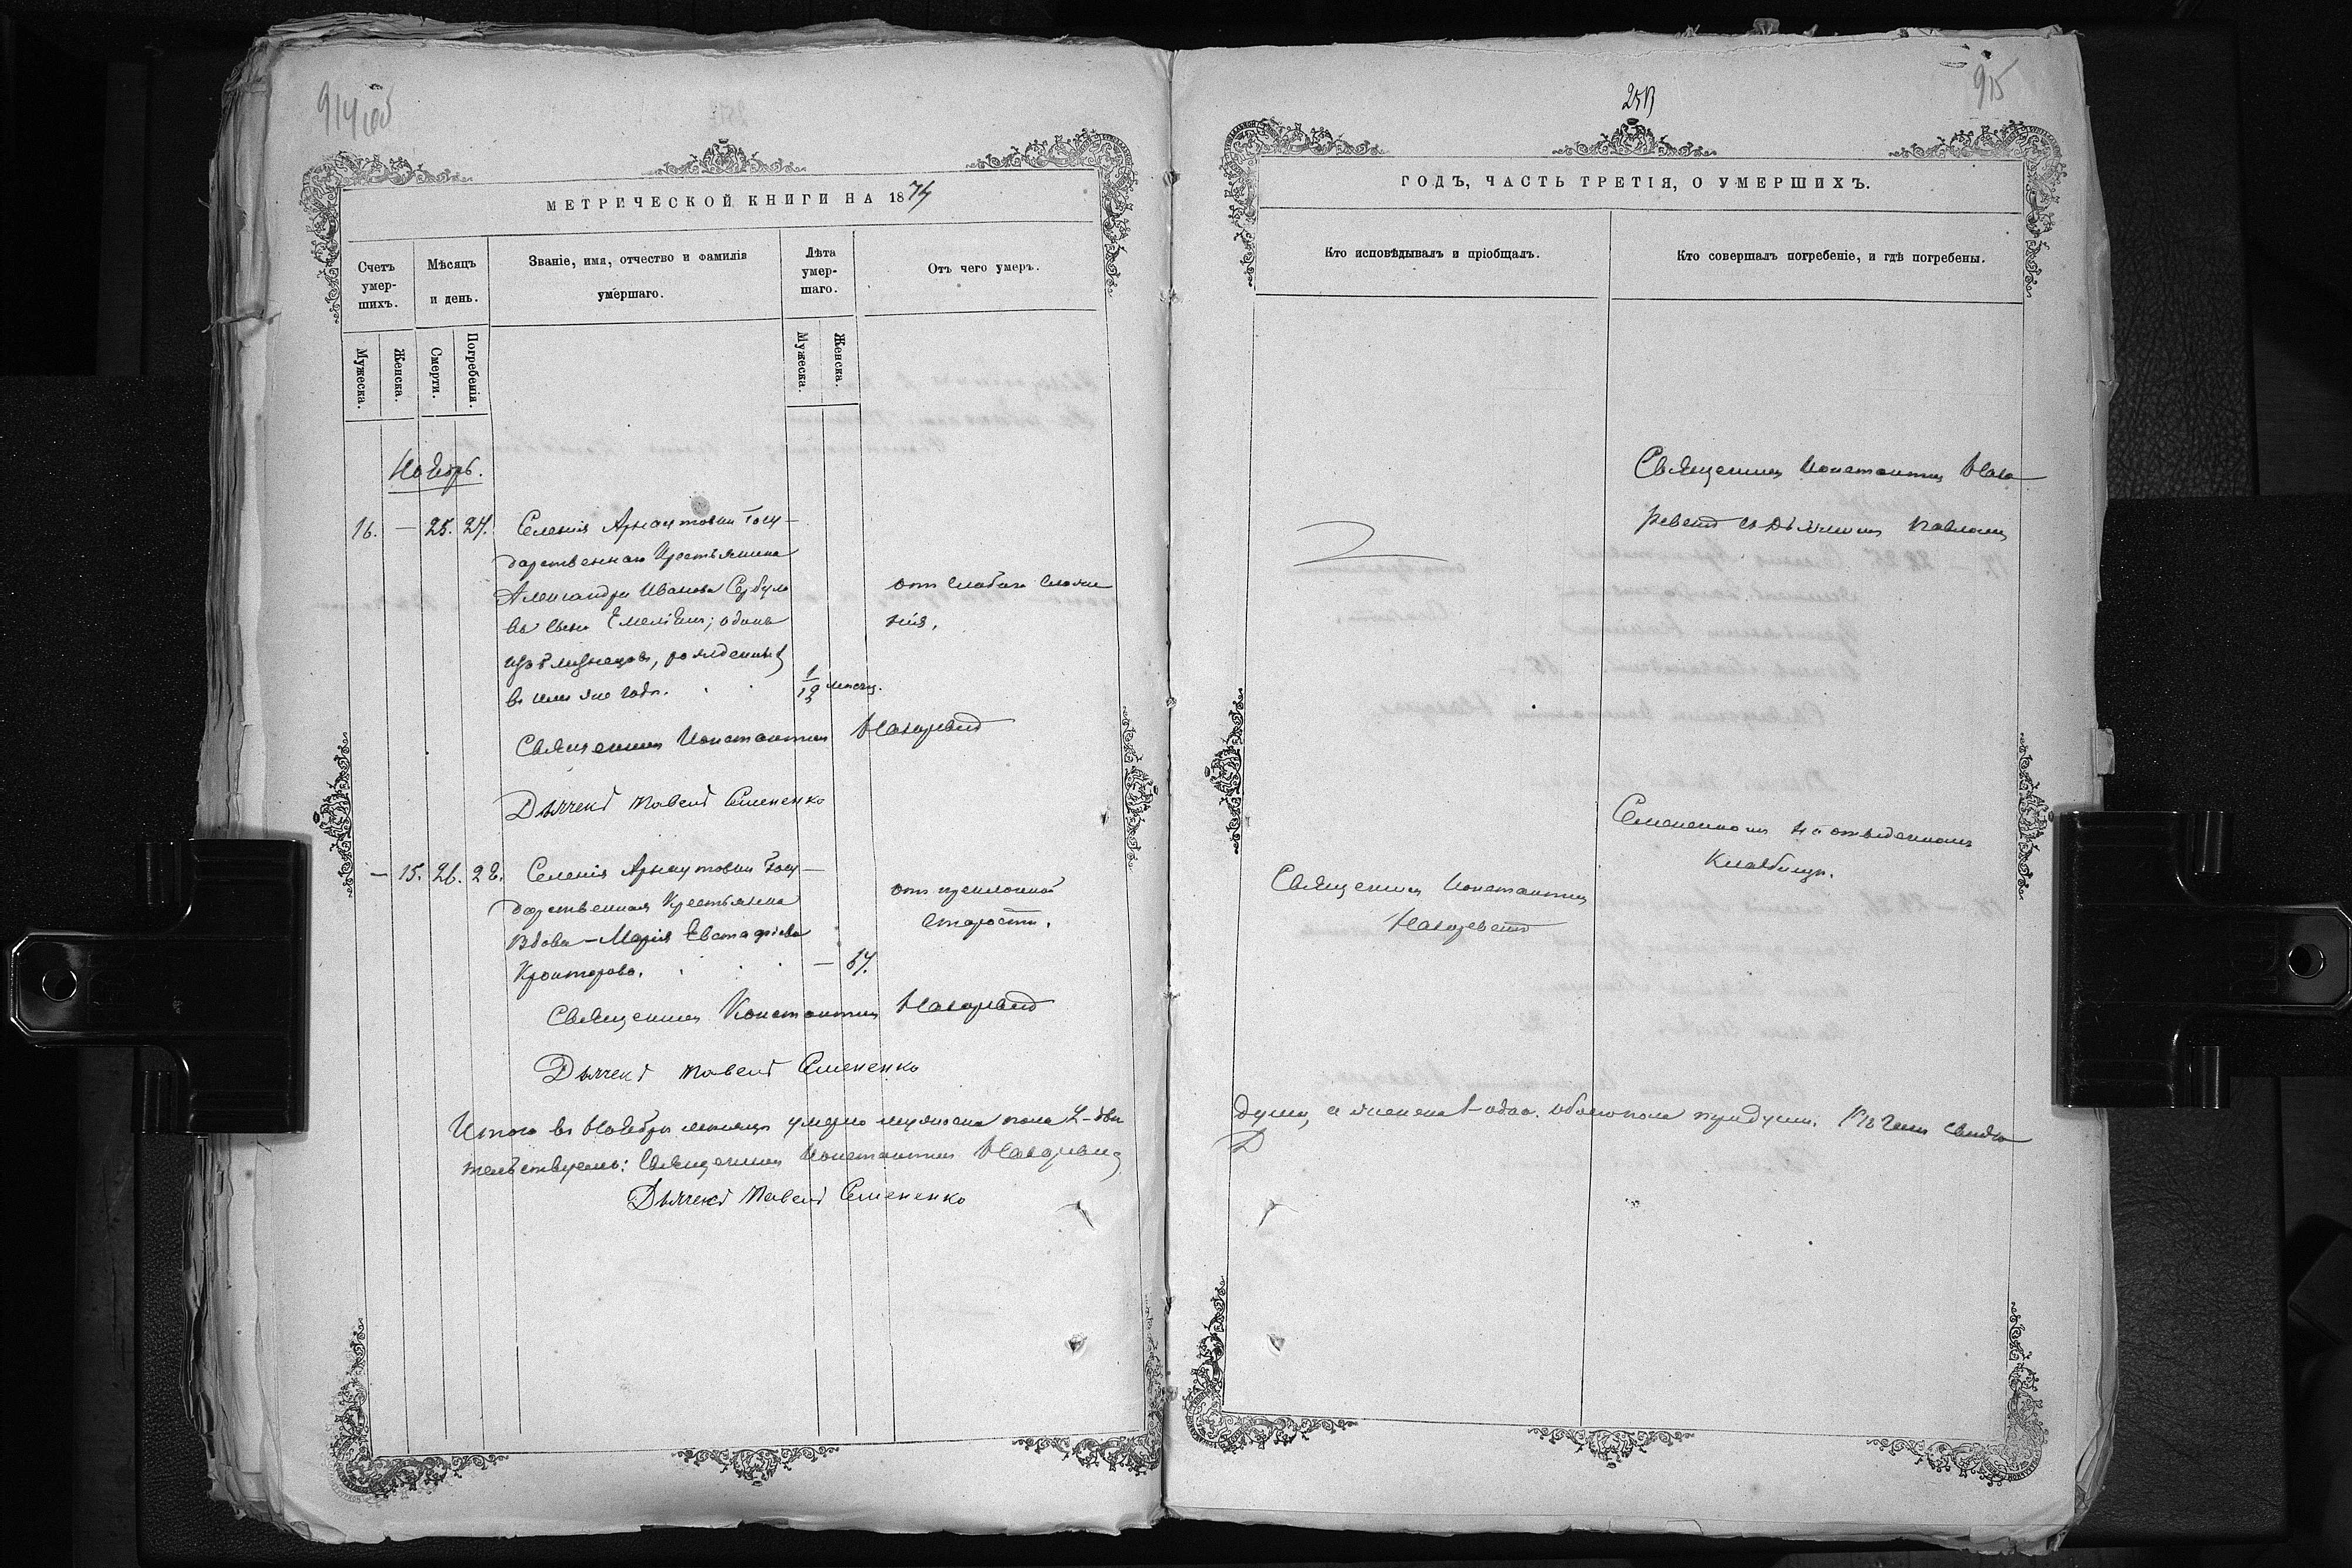 914 об
МЕТРИЧЕСКОЙ КНИГИ НА 1874
Счетъ умер-шихъ.
Мѣсяцъ и день.
Званіе, имя, отчество и фамилія умершаго.
Лѣта умер-шаго.
Отъ чего умеръ.
Мужеска.
Женска.
Смерти.
Погребенія.
Мужеска.
Женска.
Ноябрь.
16. — 25. 27. Селенія Арнаутовки Госу-
дарственнаго Крестьянина
Александра Иванова Сербуло
ва сынъ Емеліанъ; одинъ
изъ близнецовъ, рожденный
въ семъ же годѣ. 1/19 месяц.
отъ слабаго сложе
нія.
Священникъ Константинъ
Дьячекъ Павелъ Семененко
— 15. 26. 28. Селенія Арнаутовки Госу-
дарственная Крестьянка
Вдова — Марія Евстафіева
— 67.
отъ преклонной
старости.
Священникъ Константинъ
Дьячекъ Павелъ Семененко
Итого въ Ноябрѣ месяцѣ умерло мужеска пола 2-двѣ
тельствуемъ: Священникъ Константинъ
Дьячекъ Павелъ Семененко
915
ГОДЪ, ЧАСТЬ ТРЕТІЯ, О УМЕРШИХЪ.
Кто исповѣдывалъ и пріобщалъ.
Кто совершалъ погребеніе, и гдѣ погребены.
Священникъ Константинъ
съ Дьячкомъ Павломъ
Семененкомъ на отведенномъ
Кладбищѣ.
Священникъ Константинъ
души, а женска 1-одна. Обоего пола три души. Въ чемъ свидѣ
Д